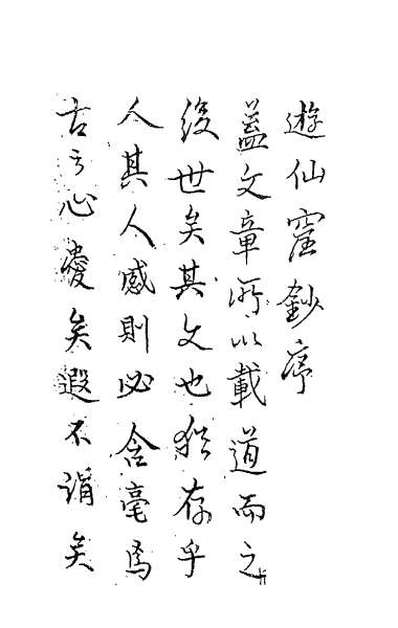 遊仙窟鈔序
蓋文章所以載道而之
後世矣其文也猶存乎
人其人感則必含毫焉
古云心愛矣遐不謂矣